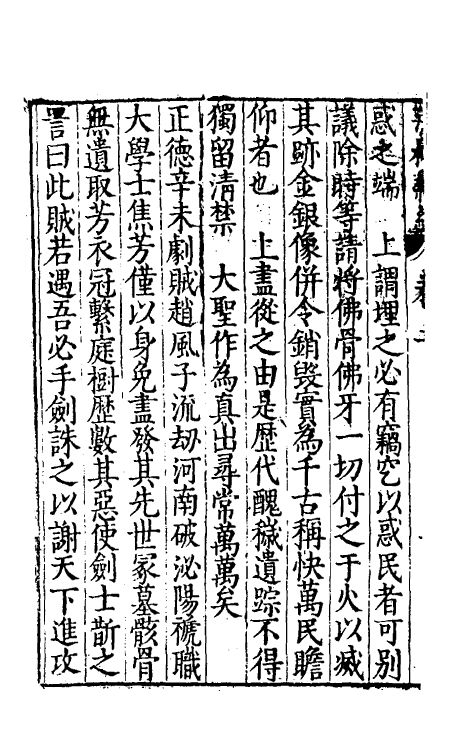 惑之端　上謂埋之必有竊空以惑民者可別
議除時等請將佛骨佛牙一切付之于火以㓕
其跡金銀像併令銷毀實為千古稱快萬民瞻
仰者也　上盡從之由是歷代醜穢遺踪不得
獨留清禁　大聖作為真出尋常萬萬矣
正德辛未劇賊趙風子流刼河南破泌陽禠職
大學士焦芳僅以身免盡發其先世冢墓骸骨
無遺取芳衣冠繫庭樹歷數其惡使劍士斮之
詈曰此賊若遇吾必手劍誅之以謝天下進攻